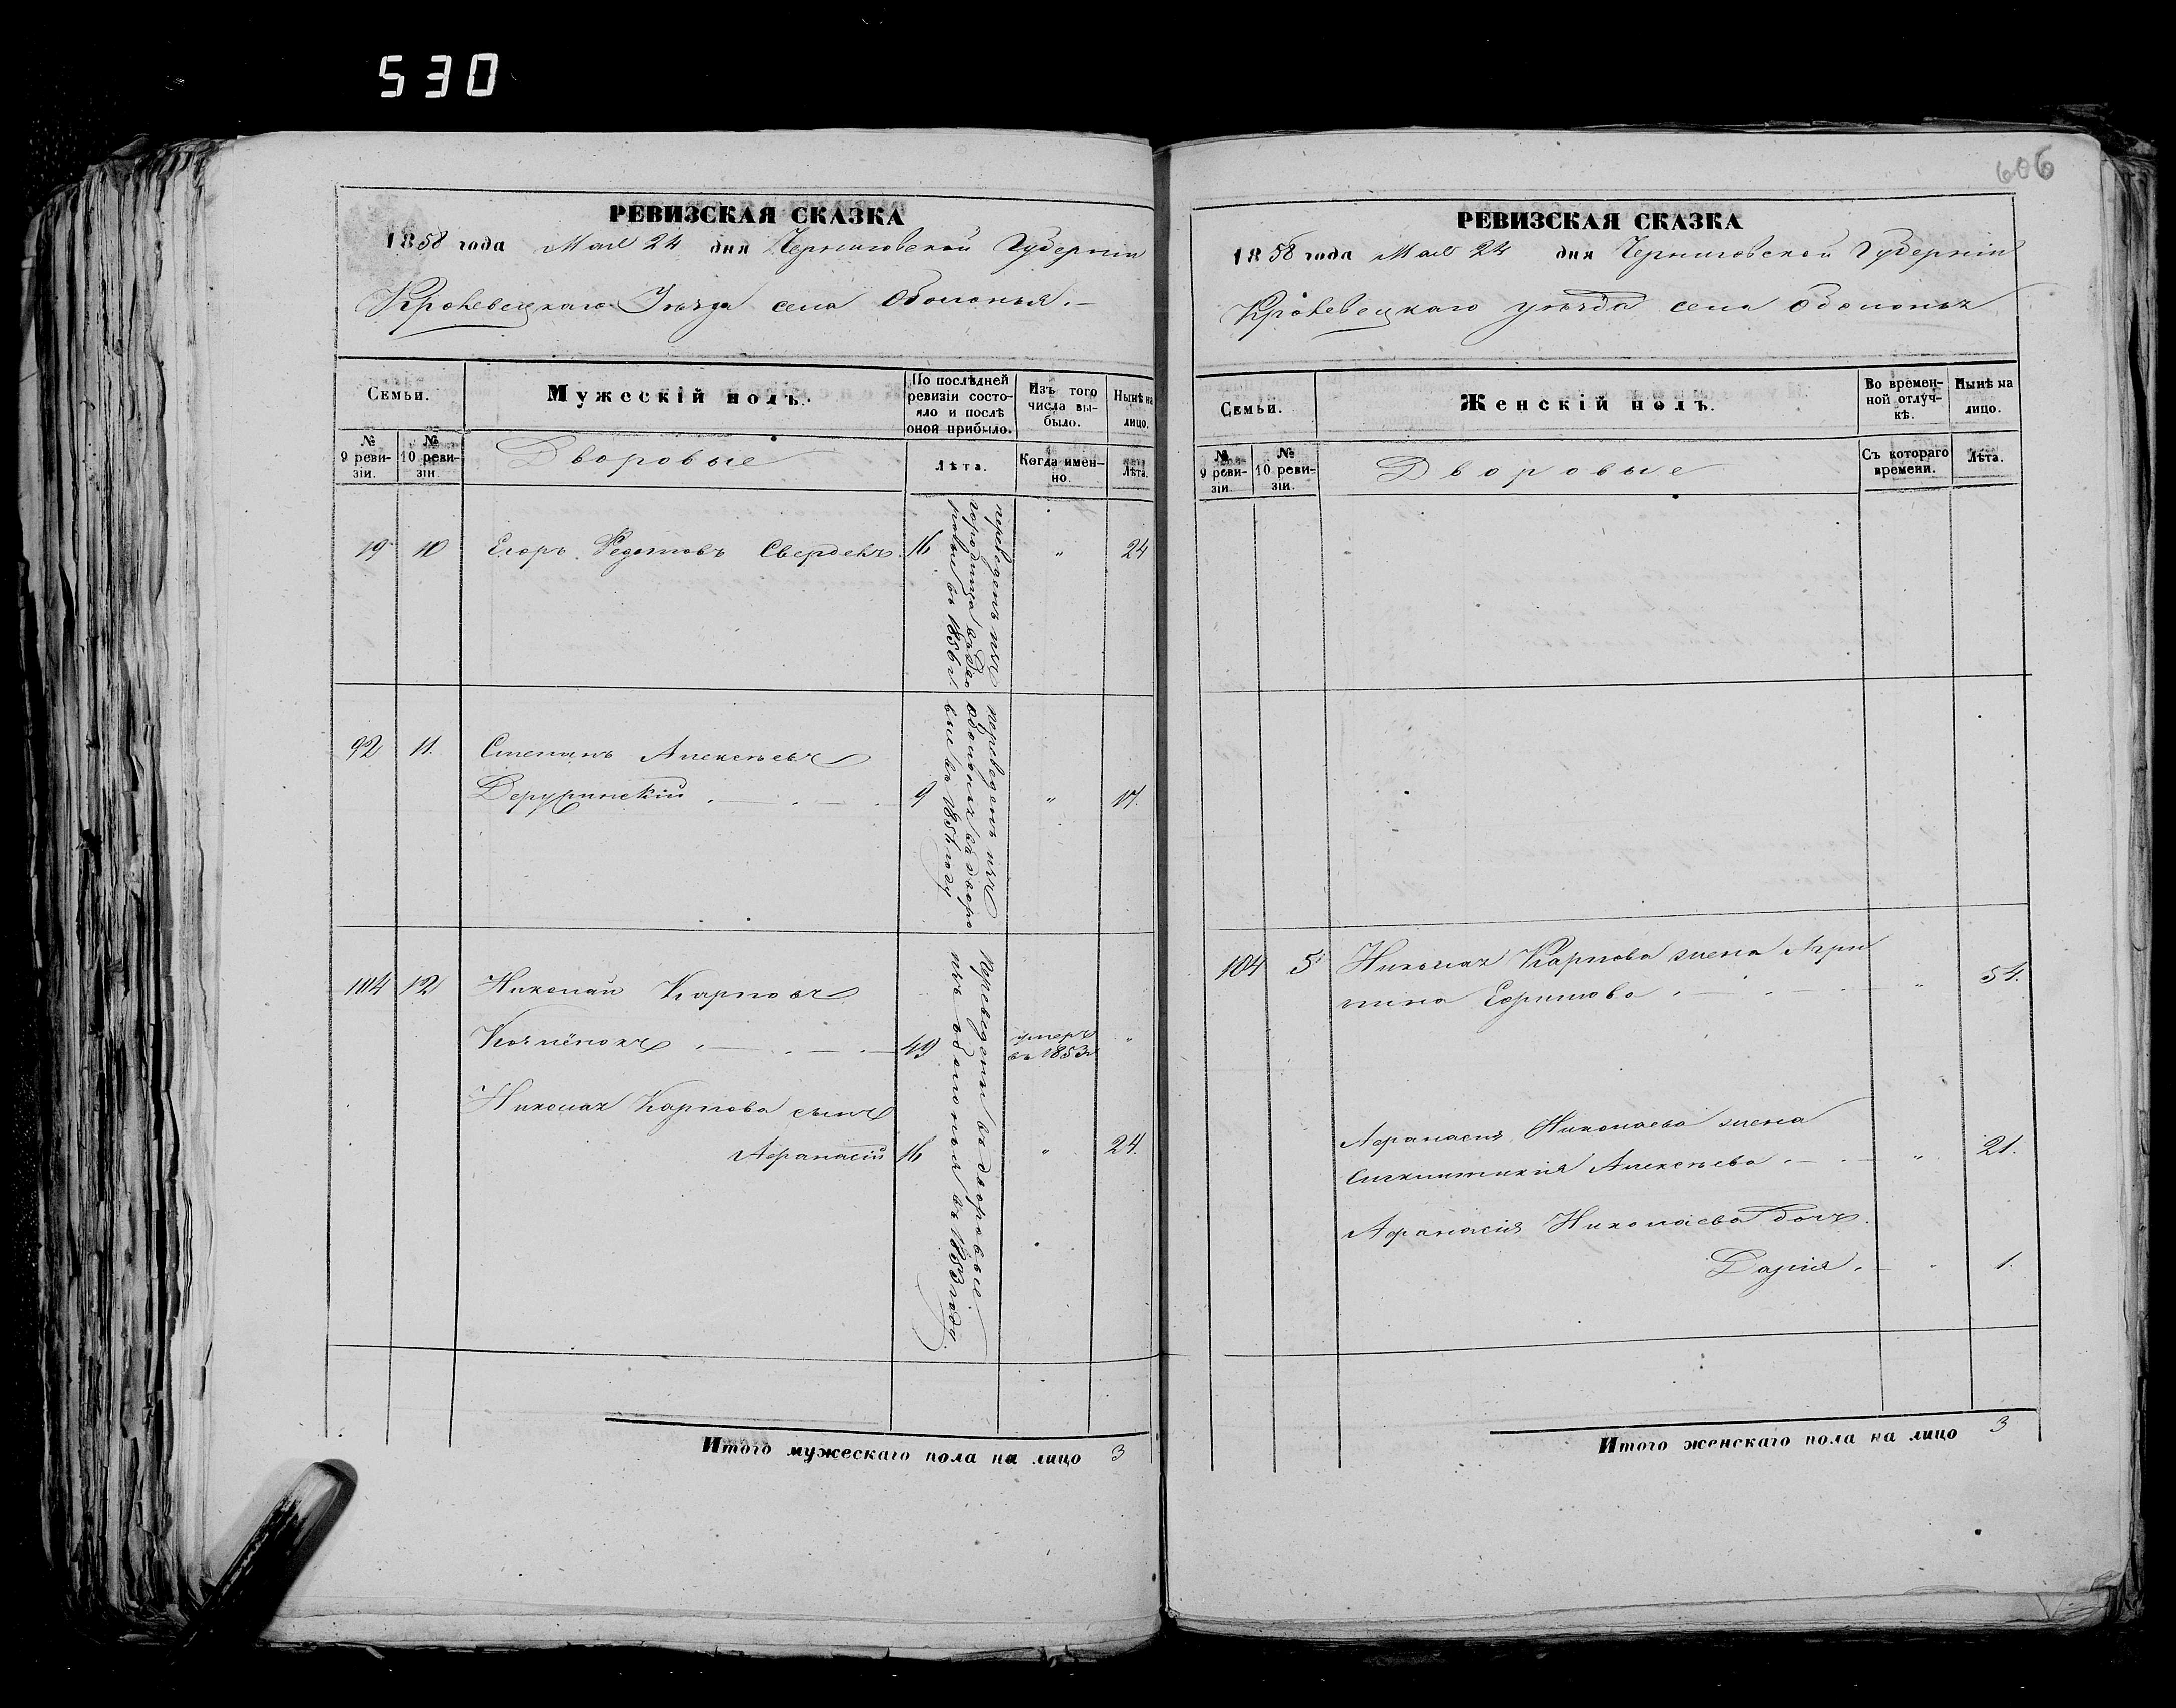 530
606
РЕВИЗСКАЯ СКАЗКА
1858 года Мая 24 дня Черниговской Губерніи
Кролевецкаго Уѣзда села Оболонья.
Семьи.
Мужескій полъ.
По послѣдней ревизіи состояло и послѣ оной прибыло.
Изъ того числа выбыло.
Нынѣ на лицо.
№ 9 ревизіи.
№ 10 ревизіи.
Дворовые
Лѣта.
Когда именно.
Лѣта.
19 10 Егоръ Федотовъ 16 " 24
переведенъ изъ
городища въ дво
ровые въ 1856 г.
92 11. Степанъ Алексѣевъ
9 " 17.
переведенъ изъ
Оболонья въ дворо
вые въ 1857 году
104 12 Николай Карповъ
49 умеръ въ 1853 г. "
Николая Карпова сынъ
Афанасій 16 " 24.
Переведены въ дворовые
изъ Оболонья въ 1853 году.
Итого мужескаго пола на лицо 3
РЕВИЗСКАЯ СКАЗКА
1858 года Мая 24 дня Черниговской Губерніи
Кролевецкаго уѣзда села Оболонья
Семьи.
Женскій полъ.
Во временной отлучкѣ.
Нынѣ на лицо.
№ 9 ревизіи.
№ 10 ревизіи.
Дворовые
Съ котораго времени.
Лѣта.
104 5 Николая Карпова жена Агри
пина Ефимова " 54.
Афанасія Николаева жена
Алексѣева " 21.
Афанасія Николаева дочь
Дарія " 1.
Итого женскаго пола на лицо 3